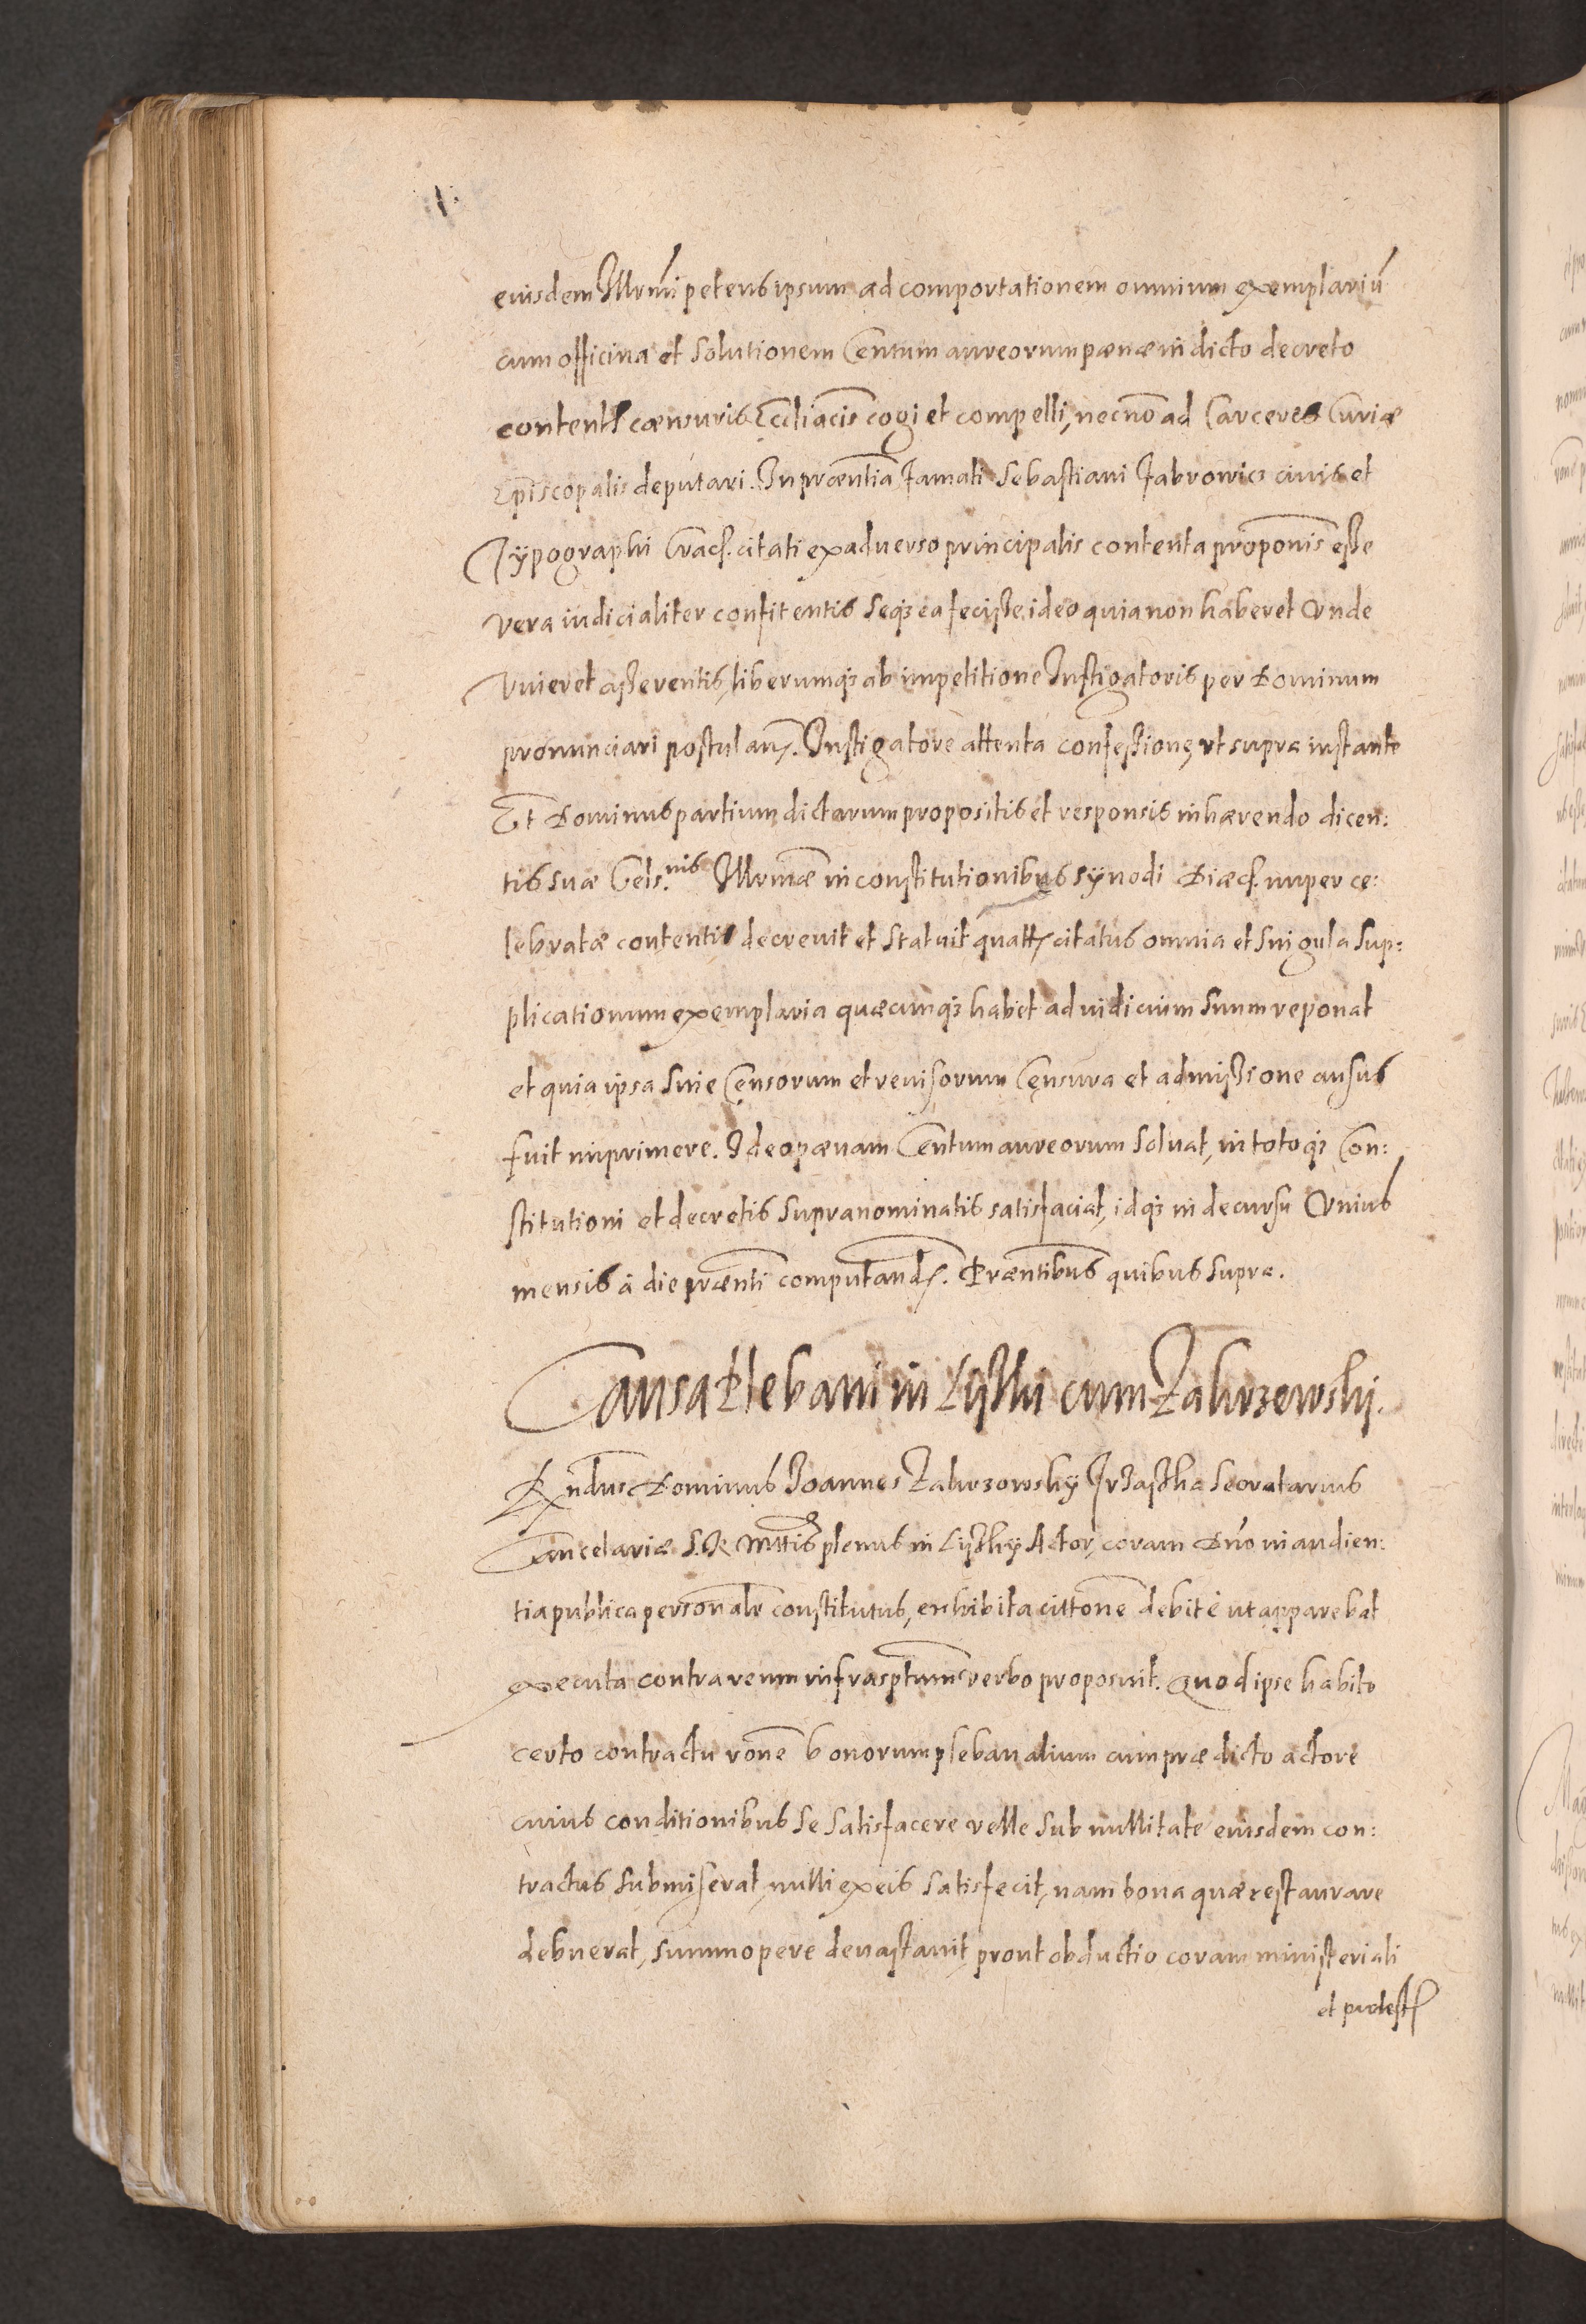 eiusdem Illrmi petens ipsum ad comportationem omnium exemplariũ
cum officina et solutionem Centum aureorum pænæ in dicto decreto
content. cænsuris Eccliacis cogi et compelli, necnõ ad Carceres Curiæ
Episcopalis deputari. In præntia famati Sebastiani Fabrowicz civis et
Typographi Crac. citati ex adverso principalis contenta propõnis esse
vera iudicialiter confitentis seq3 ea fecisse ideo quia non haberet unde
viveret asserentis, liberumq3 ab impetitione Instigatoris per Dominum
pronunciari postulan. Instigatore attenta confessione, ut supra instante
Et Dominus partium dictarum propositis et responsis inhærendo dicen:
tis suæ Cels.nis Illrmæ in constitutionibus synodi Diæc. nuper ce:
lebratæ contentis decrevit et statuit quatt. citatus omnia et singula sup:
plicationum exemplaria quæcunq3 habet ad iudicium suum reponat
et quia ipsa sine Censorum et revisorum Censura et admissione ausus
fuit imprimere. Ideo pænam Centum aureorum solvat, in totoq3 Con:
stitutioni et decretis supranominatis satisfaciat, idq3 in decursu unius
mensis à die prænti computand. Præntibus quibus supra.
Causa Plebani in Lissky cum Zakrzewsky.
Rndus Dominus Joannes Zakrzowsky Secretarius
Cancelariæ S. R. Mttis plenus in Lissky Actor, coram Dno in audien:
tia publica personalr constitutus, exhibita cittone debitè ut apparebat
executa contra reum infrasptum verbo proposuit. Quod ipse habito
certo contractu rone bonorum plebanalium cum prædicto actore
cuius conditionibus se satisfacere velle sub nullitate eiusdem con:
tractus submiserat, nulli ex eis satisfecit, nam bona quæ restaurare
debuerat, summopere devastavit, prout obductio coram ministeriali
et protest.